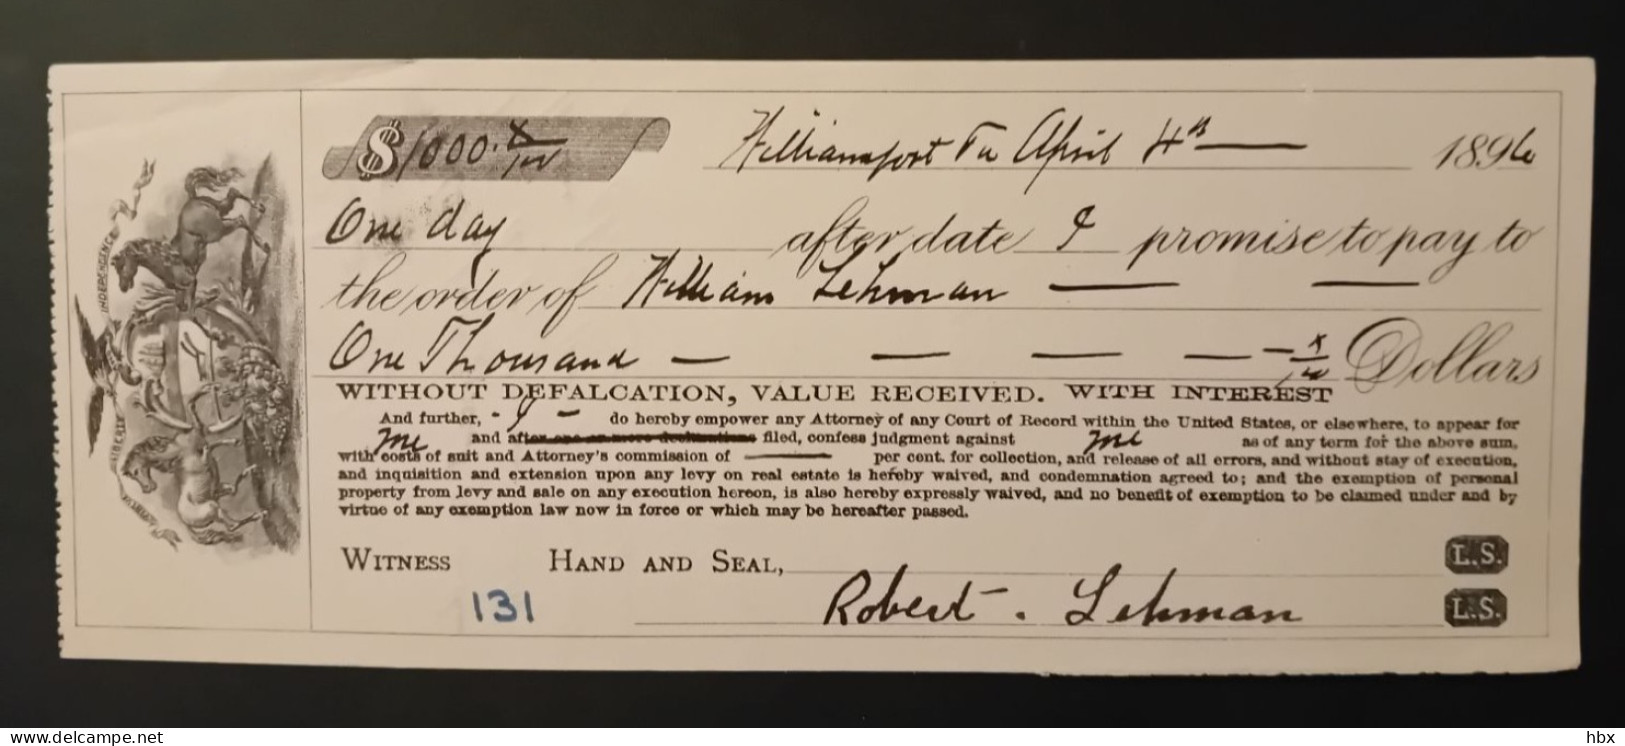 $1000. x/100
Williamsport Pa April 4th 1896
One day after date I promise to pay to
the order of William Lehman
One Thousand x/100 Dollars
WITHOUT DEFALCATION, VALUE RECEIVED. WITH INTEREST
And further, - I - do hereby empower any Attorney of any Court of Record within the United States, or elsewhere, to appear for
me and after one or more declarations filed, confess judgment against me as of any term for the above sum,
with costs of suit and Attorney's commission of — per cent. for collection, and release of all errors, and without stay of execution,
and inquisition and extension upon any levy on real estate is hereby waived, and condemnation agreed to; and the exemption of personal
property from levy and sale on any execution hereon, is also hereby expressly waived, and no benefit of exemption to be claimed under and by
virtue of any exemption law now in force or which may be hereafter passed.
WITNESS HAND AND SEAL, L.S.
131 Robert. Lehman L.S.
INDEPENDENCE
LIBERTY
www.delcampe.net
hbx